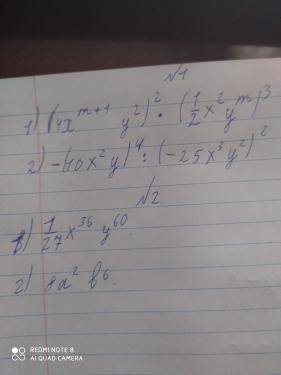 №1
1) (4x^{m+1} y^2)^2 • (1/2 x^2 y^m)^3
2) -(10x^2y)^4 : (-25x^3y^2)^2
№2
в) 1/27 x^36 y^60.
г) 8a^2 b^6.
REDMI NOTE 8
AI QUAD CAMERA